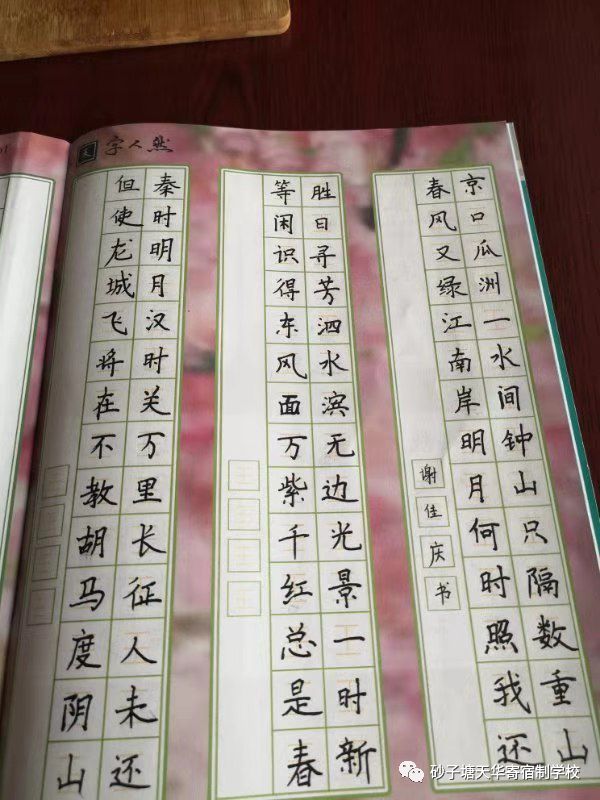 字人然
京口瓜洲一水间钟山只隔数重山
春风又绿江南岸明月何时照我还
谢佳庆书
胜日寻芳泗水滨无边光景一时新
等闲识得东风面万紫千红总是春
秦时明月汉时关万里长征人未还
但使龙城飞将在不教胡马度阴山
砂子塘天华寄宿制学校